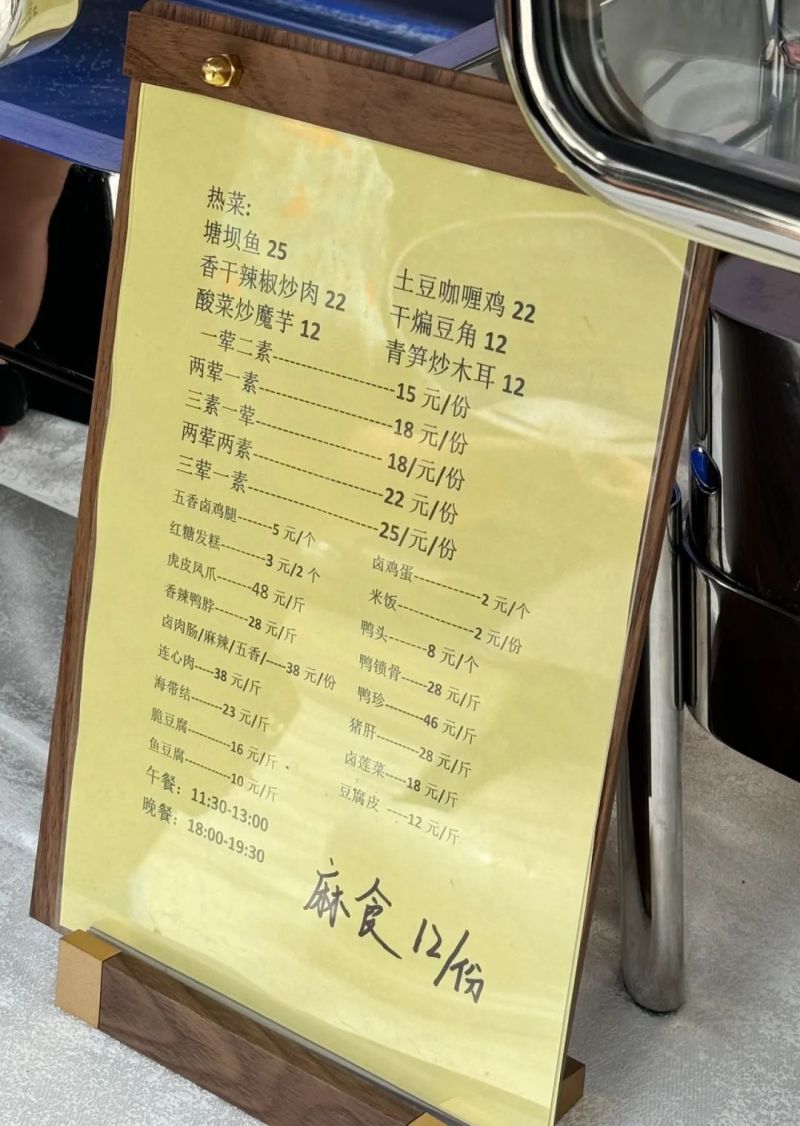 热菜:
塘坝鱼 25 土豆咖喱鸡 22
香干辣椒炒肉 22 干煸豆角 12
酸菜炒魔芋 12 青笋炒木耳 12
一荤二素--------------------15 元/份
两荤一素--------------------18 元/份
三素一荤--------------------18/元/份
两荤两素--------------------22 元/份
三荤一素--------------------25/元/份
五香卤鸡腿------5 元/个 卤鸡蛋-----------2 元/个
红糖发糕--------3 元/2 个 米饭-------------2 元/份
虎皮凤爪------48 元/斤 鸭头-------8 元/个
香辣鸭脖------28 元/斤 鸭锁骨-----28 元/斤
卤肉肠/麻辣/五香/----38 元/份 鸭珍-------46 元/斤
连心肉---38 元/斤 猪肝--------28 元/斤
海带结------23 元/斤 卤莲菜----18 元/斤
脆豆腐--------16 元/斤 豆腐皮 ----12 元/斤
鱼豆腐--------10 元/斤
午餐：11:30-13:00
晚餐：18:00-19:30
麻食 12/份